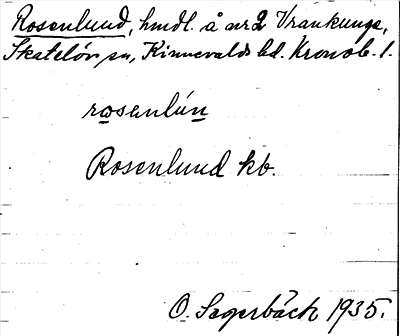 Rosenlund, hmdl. å nr 2 Vrankunge,
Skatelöv sn, Kinnevalds hd. Kronob. l.
rosenlún
Rosenlund kb.
O. Sagerbäck 1935.